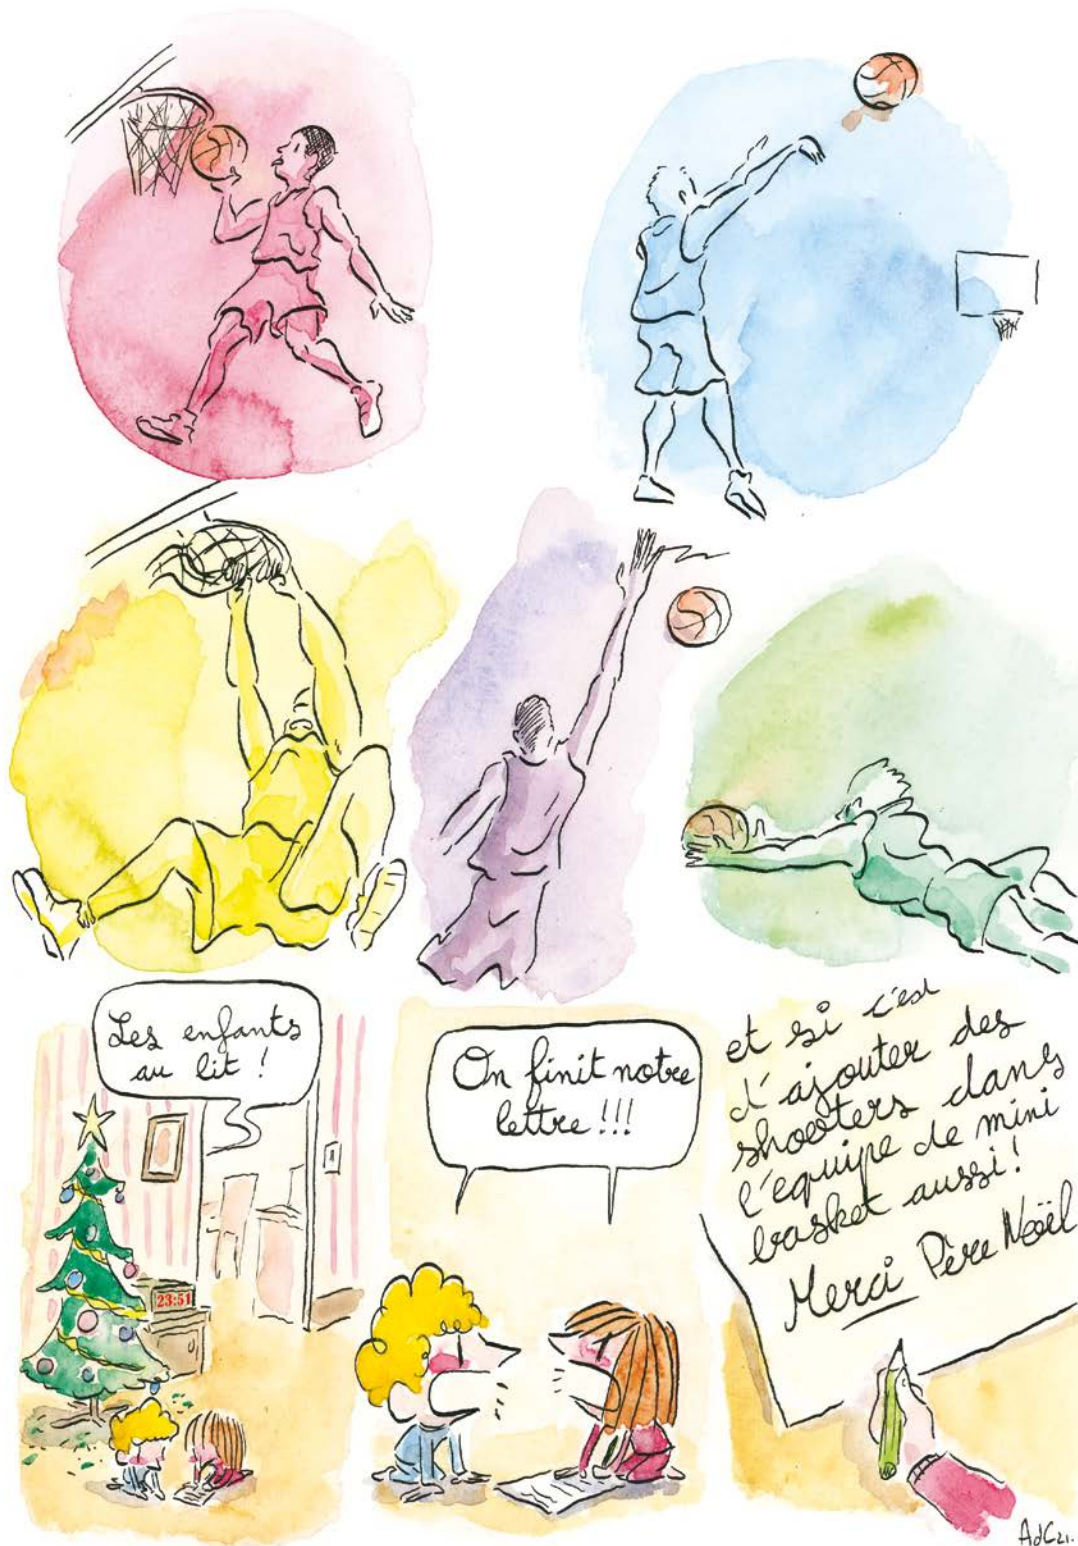 Les enfants
au lit !
On finit notre
lettre !!!
23:51
et si c'est
d'ajouter des
shooters dans
l'equipe de mini
basket aussi!
Merci Père Noël
AdC21.